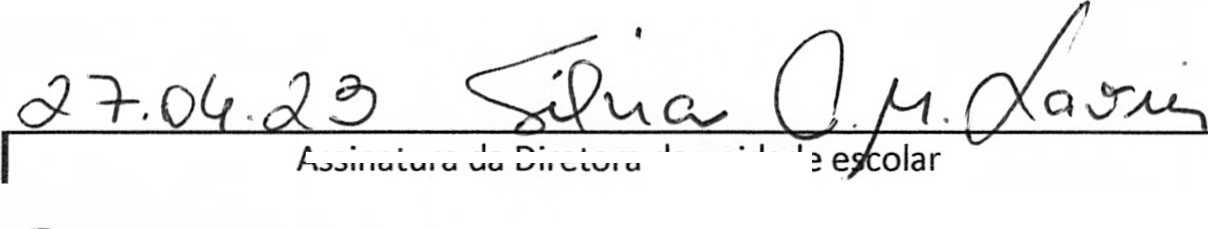 27.04.23 Silvia O. M. Lavin
Assinatura da Diretora da unidade escolar